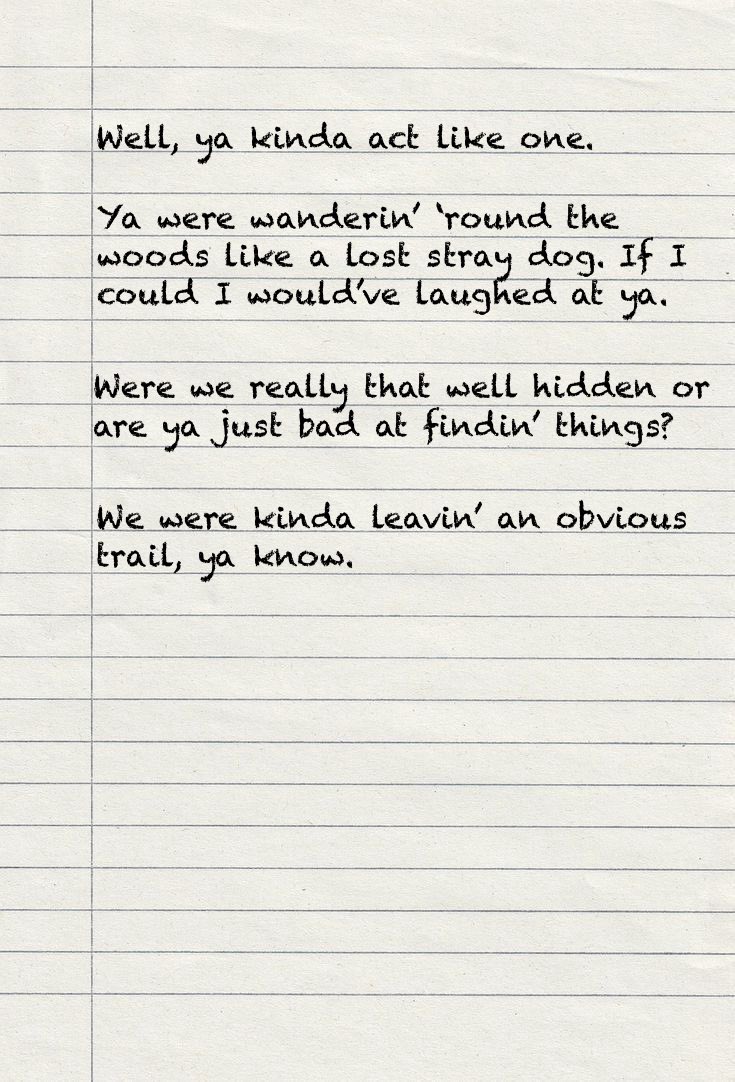 Well, ya kinda act like one.
Ya were wanderin’ ‘round the
woods like a lost stray dog. If I
could I would’ve laughed at ya.
Were we really that well hidden or
are ya just bad at findin’ things?
We were kinda leavin’ an obvious
trail, ya know.